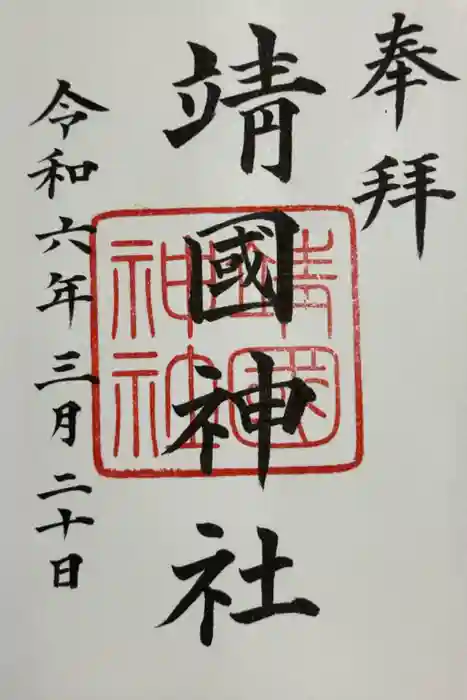 奉拝
靖國神社
靖國神社
令和六年三月二十日